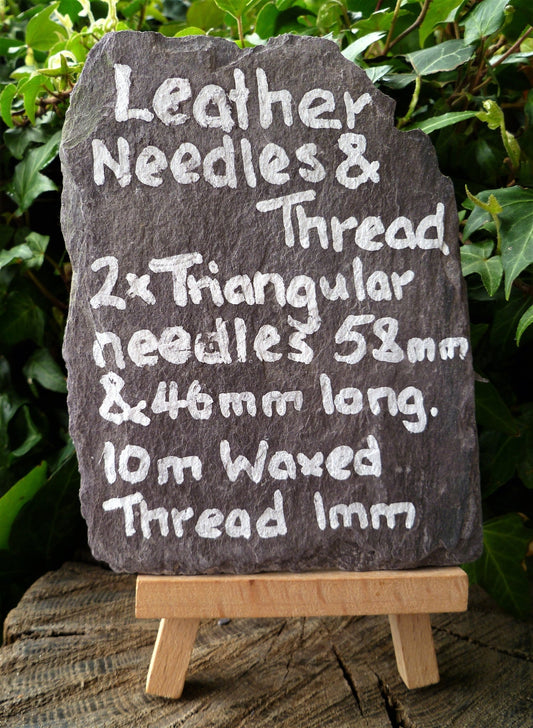 Leather
Needles &
Thread.
2x Triangular
needles 58mm
& 46mm long.
10m Waxed
Thread 1mm